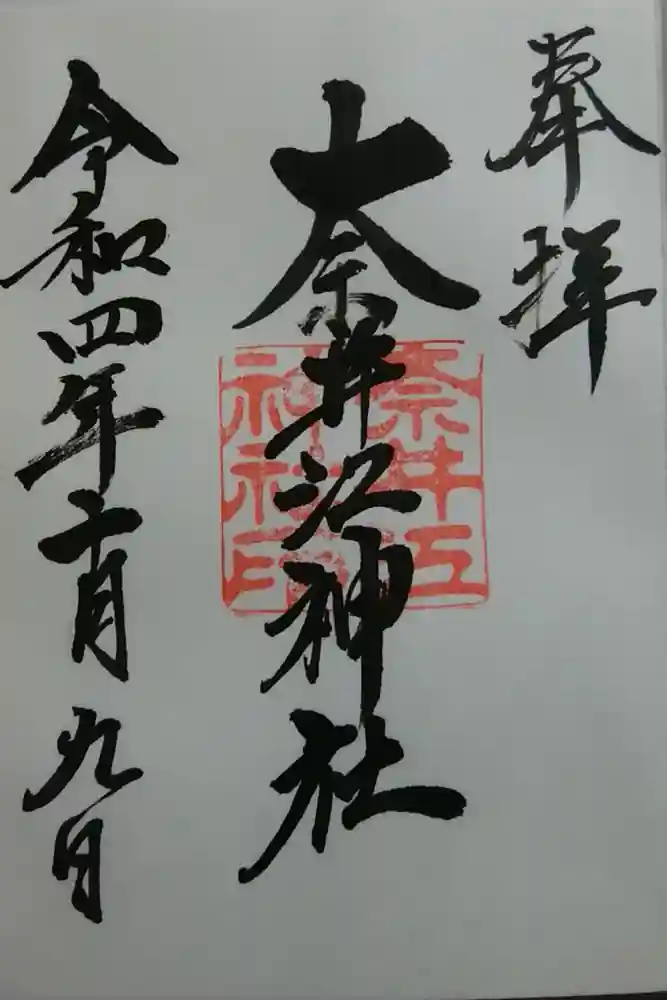 奉拝
奈井江神社
令和四年十月九日
奈井江
神社印